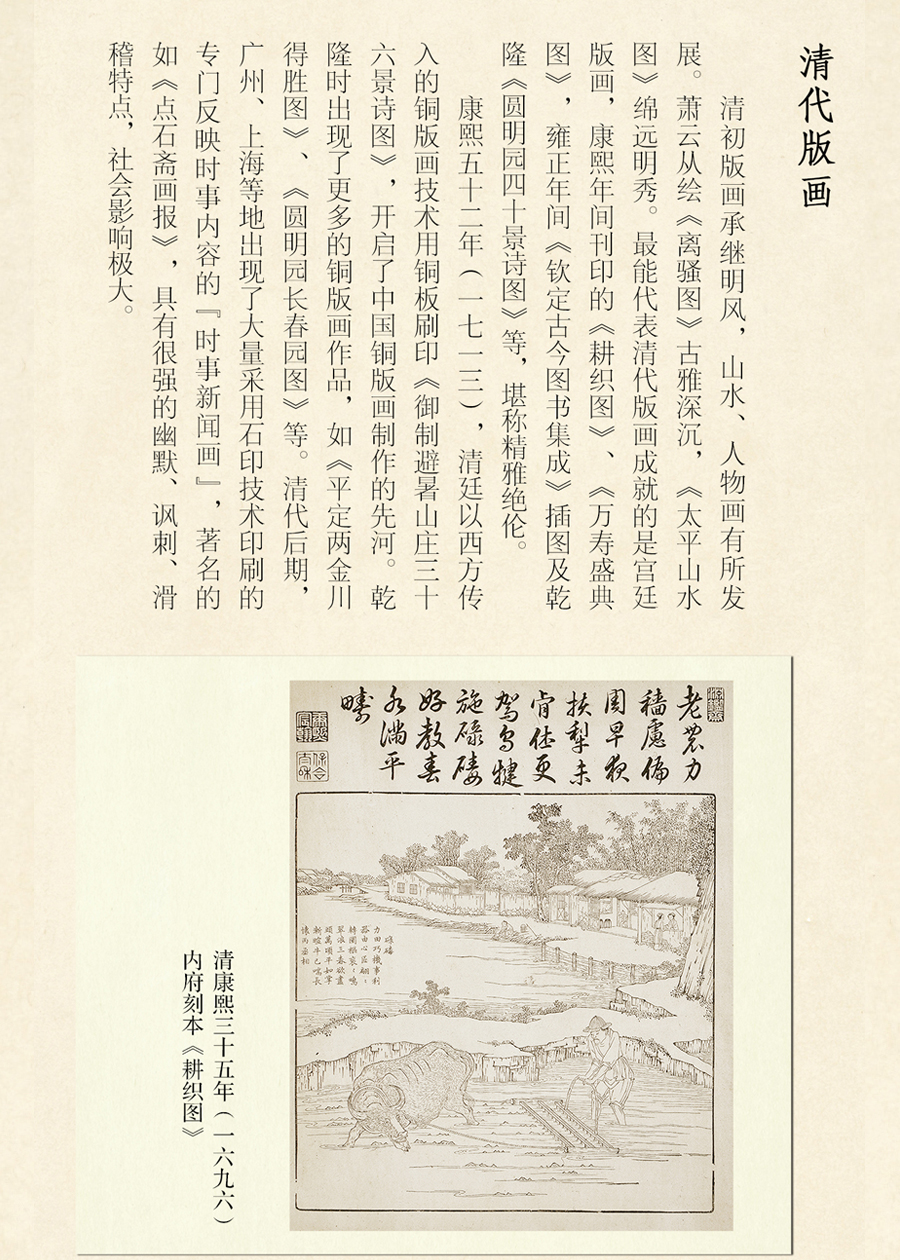 清代版画
清初版画承继明风，山水、人物画有所发
展。萧云从绘《离骚图》古雅深沉，《太平山水
图》绵远明秀。最能代表清代版画成就的是宫廷
版画，康熙年间刊印的《耕织图》、《万寿盛典
图》，雍正年间《钦定古今图书集成》插图及乾
隆《圆明园四十景诗图》等，堪称精雅绝伦。
康熙五十二年（一七一三），清廷以西方传
入的铜版画技术用铜板刷印《御制避暑山庄三十
六景诗图》，开启了中国铜版画制作的先河。乾
隆时出现了更多的铜版画作品，如《平定两金川
得胜图》、《圆明园长春园图》等。清代后期，
广州、上海等地出现了大量采用石印技术印刷的
专门反映时事内容的『时事新闻画』，著名的
如《点石斋画报》，具有很强的幽默、讽刺、滑
稽特点，社会影响极大。
老農力
穡慮偏
周早夜
扶犁未
肯休更
駕烏犍
施碌碡
好教春
水滿平
疇
碌碡
力田巧機事利
器由心匠翩
轉圜
翠浪三春欲盡
頃萬頃平如掌
漸暄牛已喘長
懷丙丞相
清康熙三十五年（一六九六）
内府刻本《耕织图》